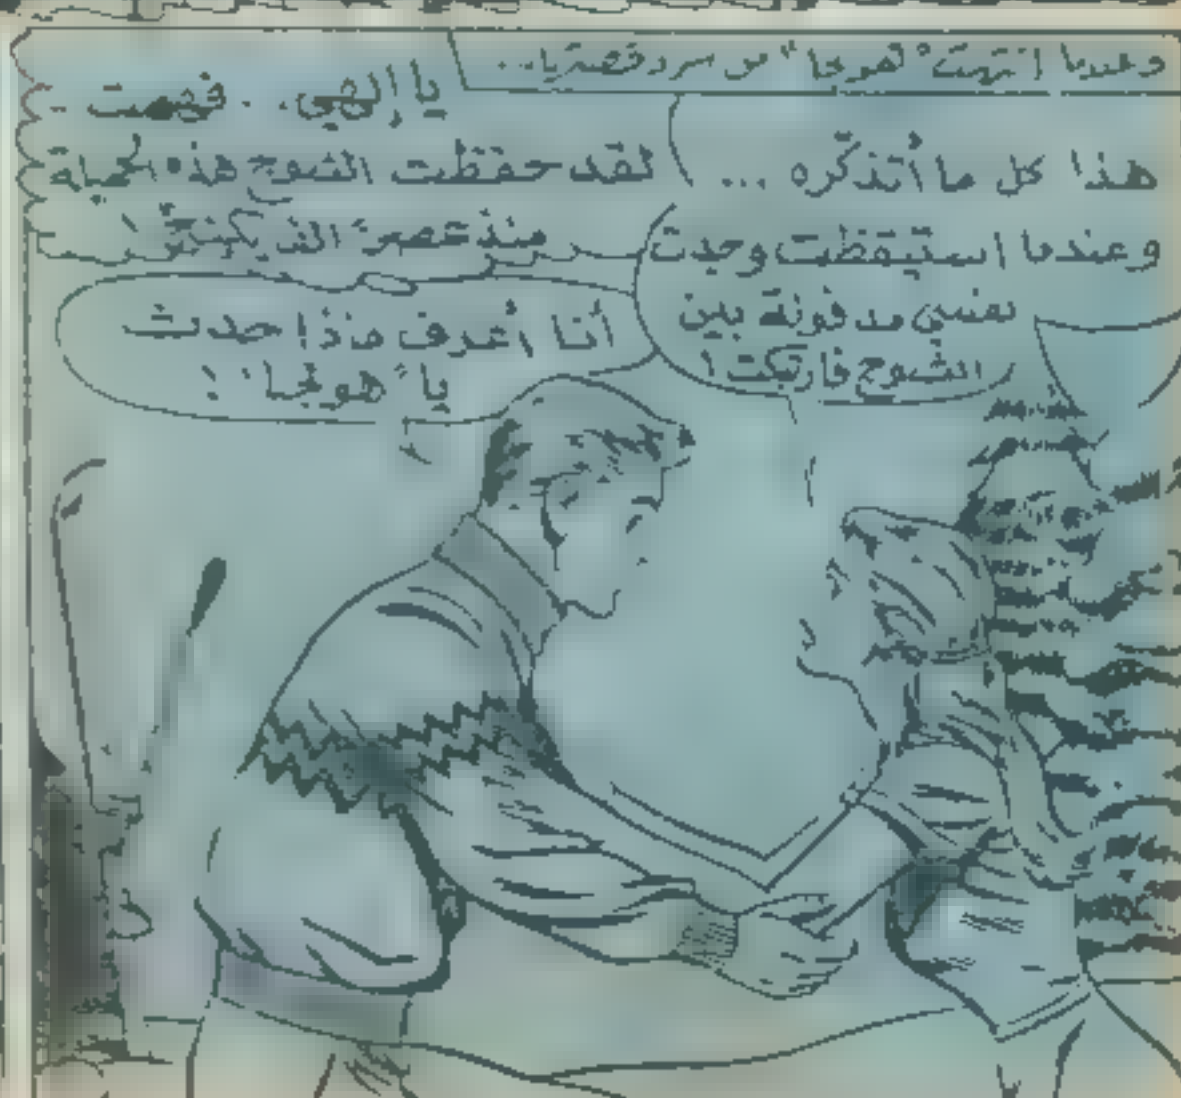 وعندما انتهت "هونجا" من سرد قصتها...
هذا كل ما أتذكّره ...
وعندما استيقظت وجدت
نفسي مدفونة بين
الثلوج فارتبكت !
يا إلهي . . فهمت
لقد حفظت الثلوج هذه الجميلة
منذ عصر
أنا أعرف ماذا حدث
يا "هونجا" !